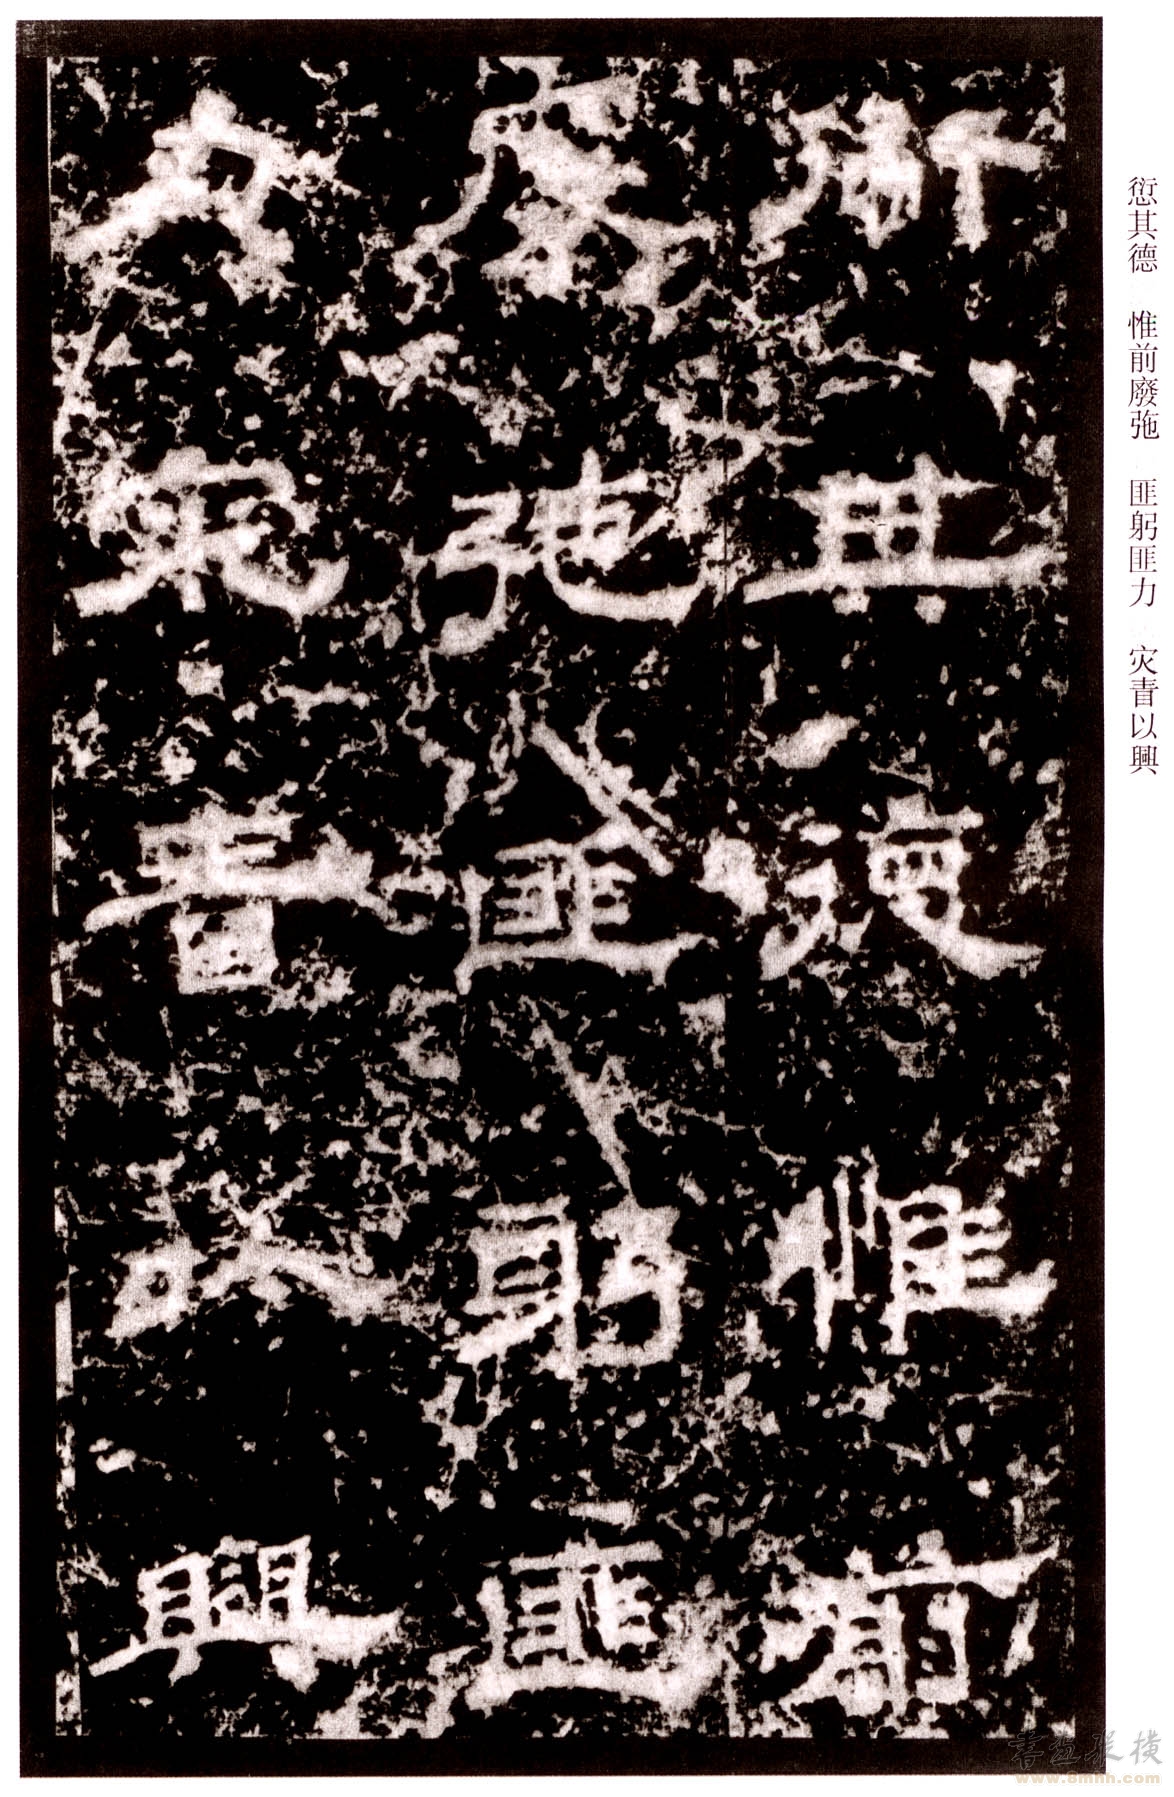 愆其德　惟前廢弛　匪躬匪力　灾眚以興
愆其德惟前
廢弛匪躬匪
力灾眚以興
www.8mhh.com